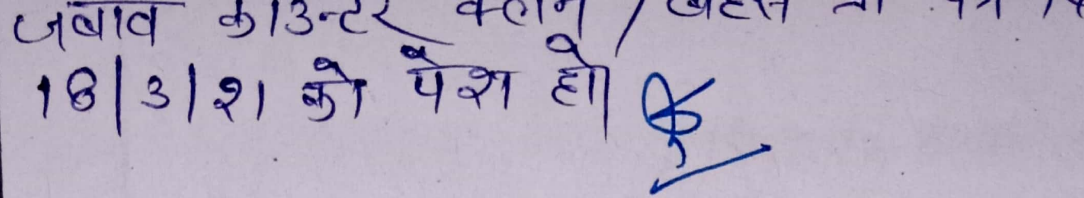 जबाव काउन्टर क्लेम / बहस
18/3/21 को पेश हो।